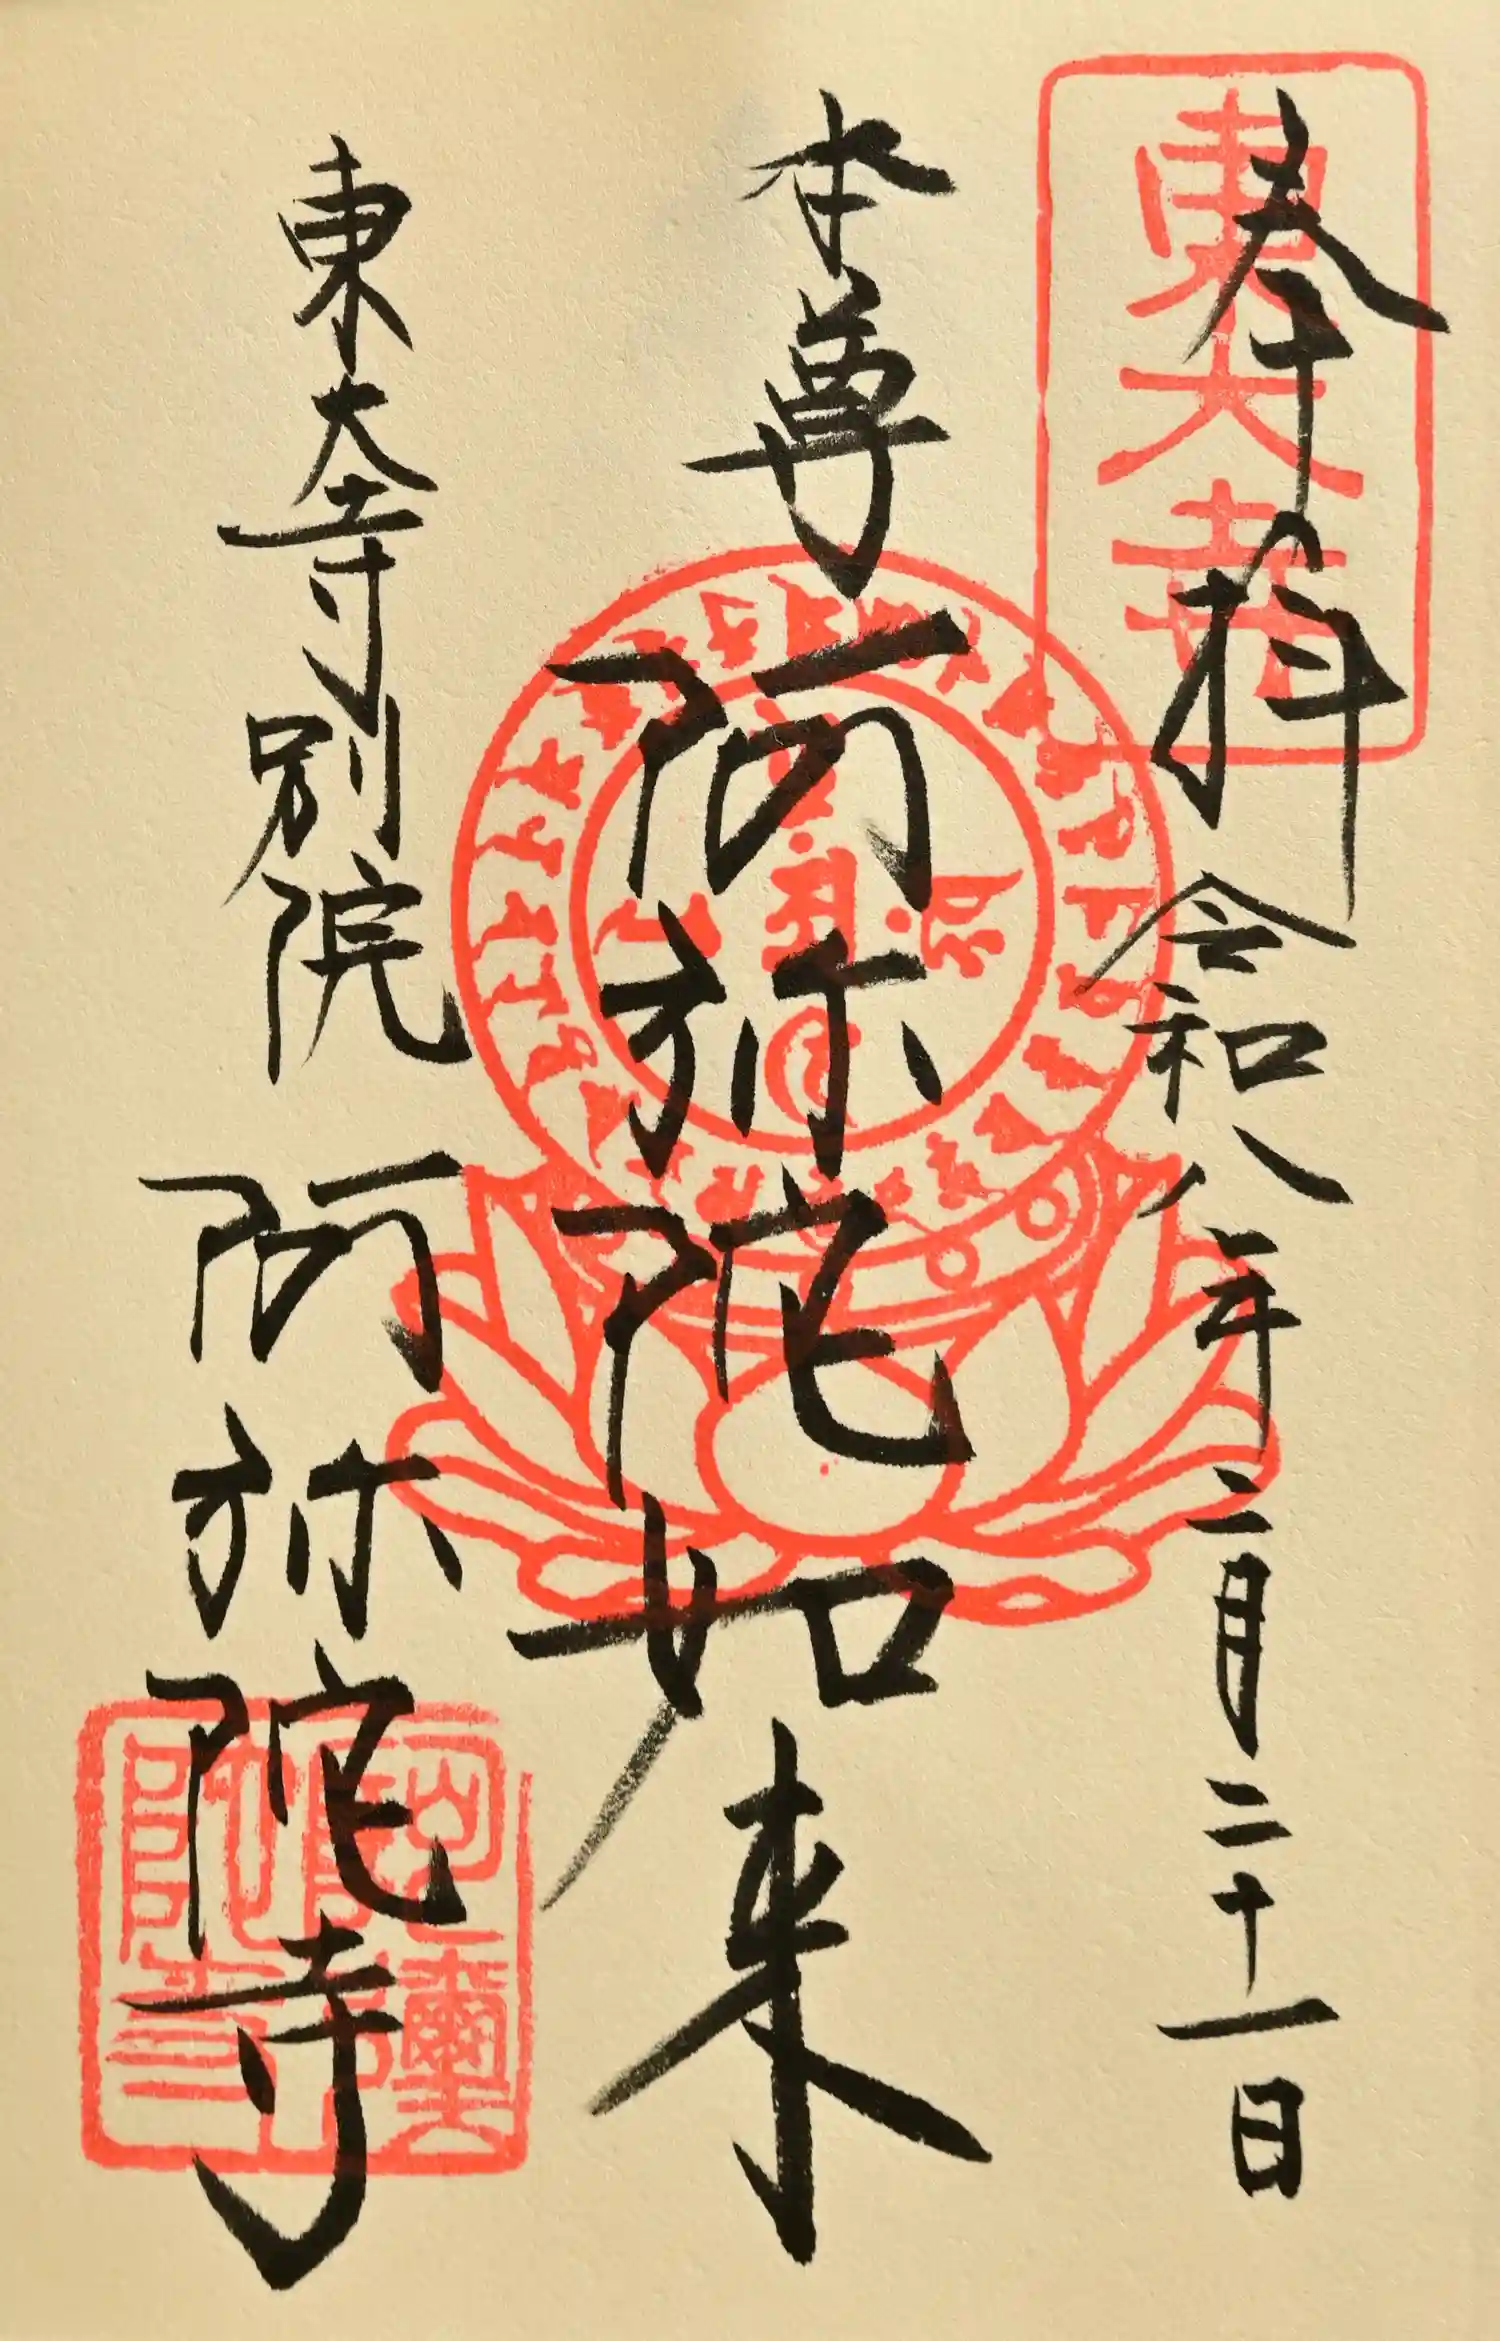 奉拝 令和八年二月二十一日
東大寺
本尊 阿弥陀如来
東大寺別院 阿弥陀寺